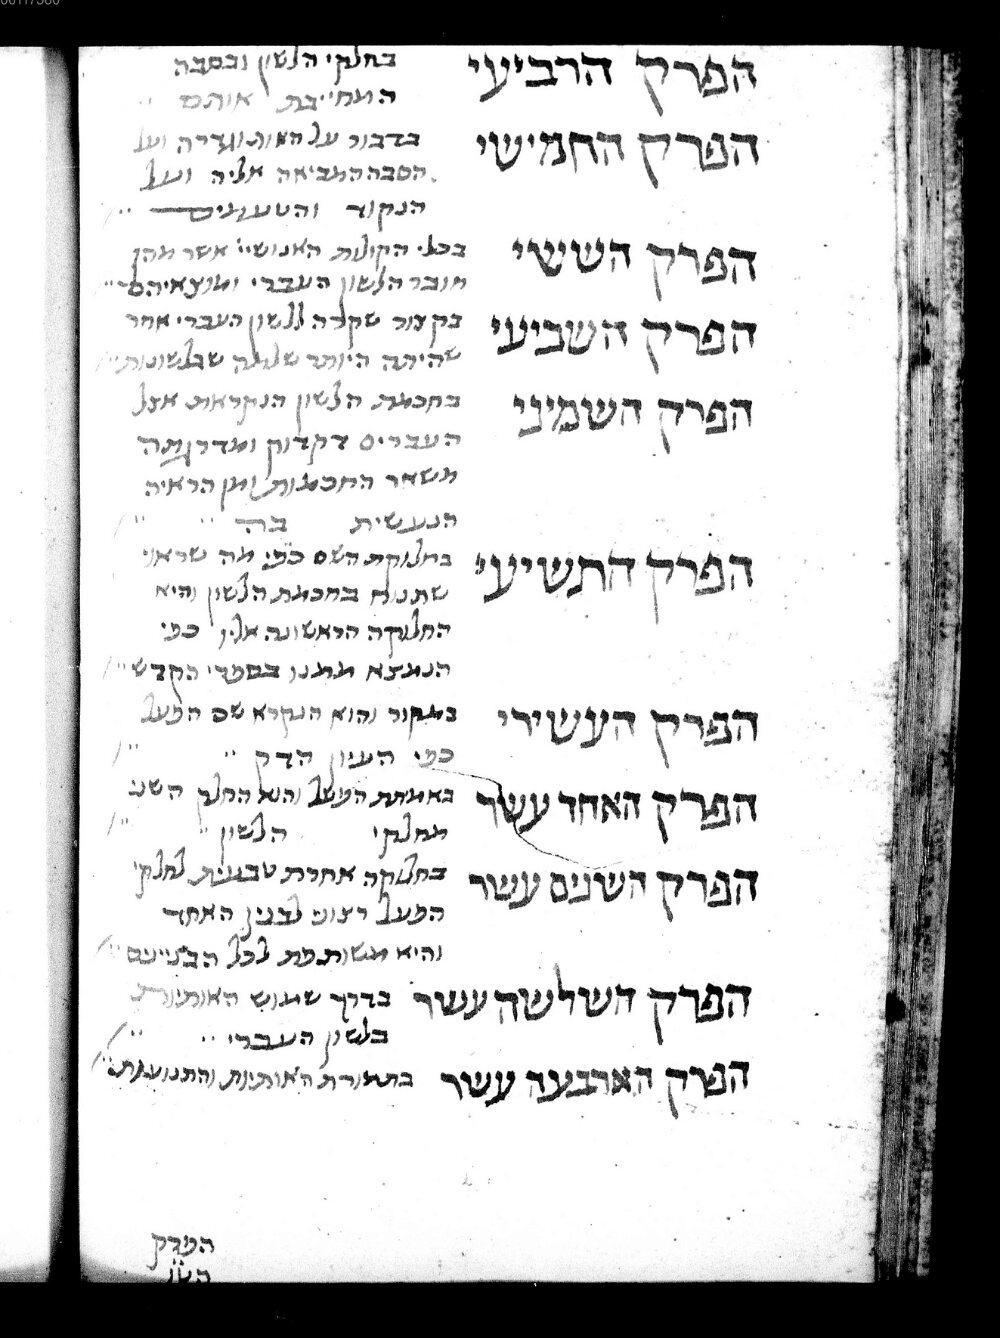 הפרק הרביעי בחלקי הלשון ובסבה
המחייבת אותם
הפרק החמישי בדבור על האותו וגדרה ועל
הסבה המביאה אליה ועל
הנקוד והטעמים
הפרק הששי בכלי הקולות האנושיי אשר מהן
חובר הלשון העברי ומוצאיהם
הפרק השביעי בקצור שקרה ללשון העברי אחר
שהיתה היותר שלמה שבלשונות
הפרק השמיני בחכמת הלשון הנקראת אצל
העברים דקדוק ומדרגתה
משאר החכמות ומן הראיה
הנעשית בה
הפרק התשיעי בחלוקת השם כפי מה שראוי
שתנוח בחכמת הלשון והיא
החלוקה הראשונה אליו כפי
הנמצא ממנו בספרי הקדש
הפרק העשירי במקור והוא הנקרא שם הפעל
כפי העיון הדק
הפרק האחד עשר באמתת הפעל והוא החלק השני
מחלקי הלשון
הפרק השנים עשר בחלוקה אחרת טבעית לחלקי
הפעל רצוני לבנין האחד
והיא משותפת לכל הבניינים
הפרק השלשה עשר בדרך שמוש האותיות
בלשון העברי
הפרק הארבעה עשר בתמורת האותיות והתנועות
הפרק